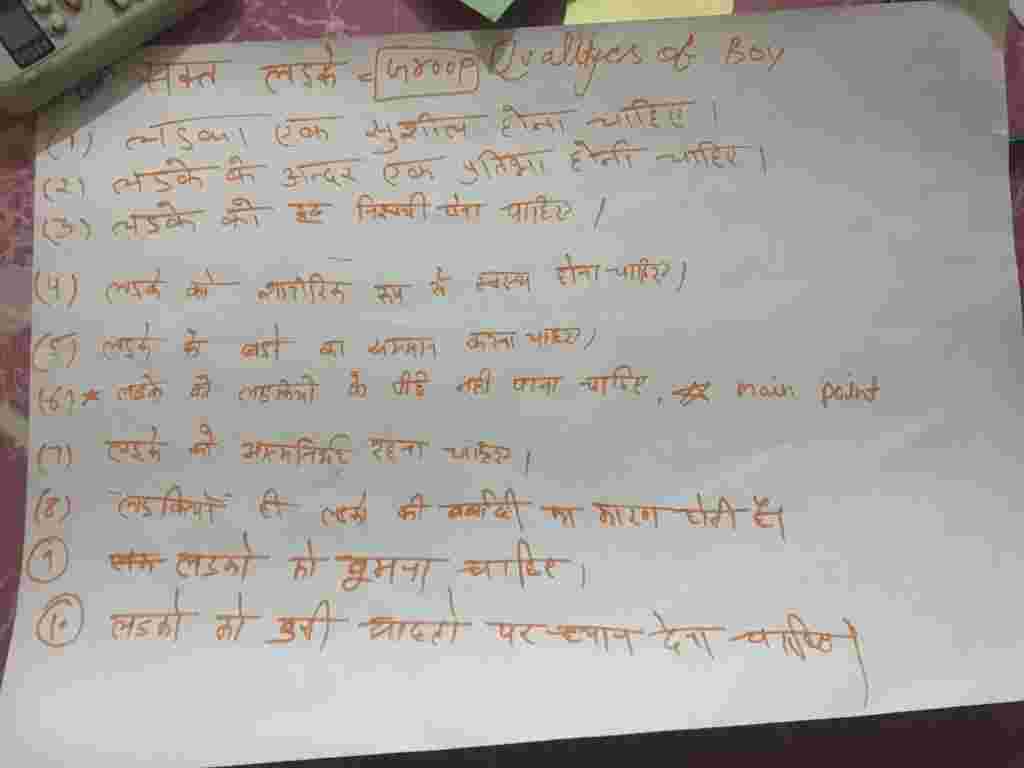 सक्त लडके = Groop Qualityes of Boy
(1) लडका एक सुशील होना चाहिए।
(2) लडके के अन्दर एक प्रतिभा होनी चाहिए।
(3) लडके को होना चाहिए।
(4) लडके को शारीरिक रूप से स्वस्थ होना चाहिए।
(5) लडके को बडो का सम्मान करना चाहिए।
(6) * लडके को लडकियो के पीछे नही चाहिए, main point
(7) लडके को आत्मनिर्भर रहना चाहिए।
(8) लडकियाँ ही लडको की बर्बादी का कारण होती है।
9 लडको को घूमना चाहिए।
लडको को पर ध्यान देना चाहिए।